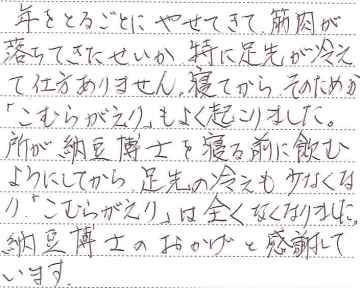 年をとるごとに やせてきて、筋肉が
落ちてきたせいか 特に足先が冷え
て仕方ありません。寝てから そのためか
「こむらがえり」もよく起こりました。
所が 納豆博士を寝る前に飲む
ようにしてから 足先の冷えも 少なくな
り、「こむらがえり」は全くなくなりました。
納豆博士のおかげと感謝して
います。